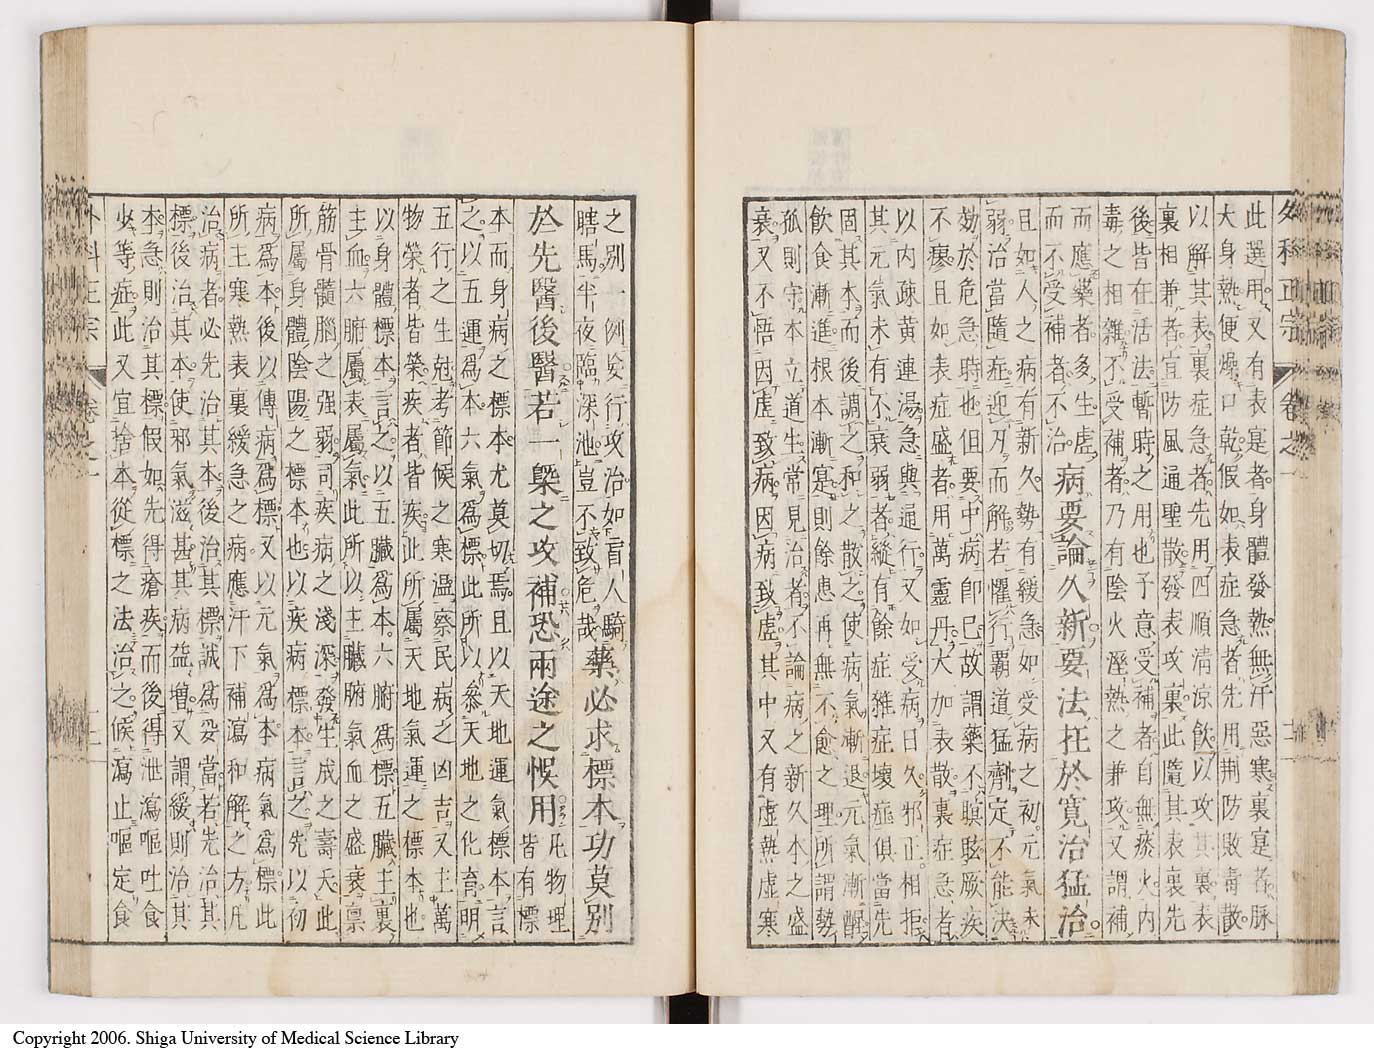 此選用又有表寔者身體發熱無汗惡寒裏寔者脉
大身熱便燥口乾假如表症急者先用荆防敗毒散
以解其表裏症急者先用四順清涼飲以攻其裏表
裏相兼者宜防風通聖散發表攻裏此隨其表裏先
後皆在活法暫時之用也予意受補者自無痰火内
毒之相雜不受補者乃有陰火溼熱之兼攻又謂補
而應藥者多生虛
而不受補者不治病要論久新要法抂於寛治猛治
且如人之病有新久勢有緩急如受病之初元氣未
弱治當隨症迎刃而解若懼行覇道猛劑定不能决
効於危急時也但要中病卽已故謂藥不瞑眩厥疾
不瘳且如表症盛者用萬靈丹大加表散裏症急者
以内疎黄連湯急與通行又如受病日久邪正相拒
其元氣未有不衰弱者縱有餘症雜症壞症俱當先
固其本而後調之和之散之使病氣漸退元氣漸醒
飲食漸進根本漸寔則餘患再無不愈之理所謂勢
孤則守本立道生常見治者不論病之新久本之盛
衰又不悟因虛致病因病致虛其中又有虛熱虛寒
外科正宗 卷之一 十二
之別一例妄行攻治如盲人騎
瞎馬半夜臨深池豈不致危哉藥必求標本功莫別
於先醫後醫若一槩之攻補恐兩途之悞用凡物理
皆有標
本而身病之標本尤莫切焉且以天地運氣標本言
之以五運爲本六氣爲標此所以叅天地之化育明
五行之生尅考節候之寒溫察民病之凶吉又主萬
物榮者皆榮疾者皆疾此所屬天地氣運之標本也
以身體標本言之以五臟爲本六腑爲標五臟主裏
主血六腑屬表屬氣此所以主臟腑氣血之盛衰禀
筋骨髓腦之强弱司疾病之淺深發生成之壽夭此
所屬身體陰陽之標本也以疾病標本言之先以初
病爲本後以傳病爲標又以元氣爲本病氣爲標此
所主寒熱表裏緩急之病應汗下補瀉和解之方凡
治病者必先治其本後治其標誠爲妥當若先治其
標後治其本使邪氣滋甚其病益增又謂緩則治其
本急則治其標假如先得瘡疾而後得泄瀉嘔吐食
少等症此又宜捨本從標之法治之候瀉止嘔定食
外科正宗 卷之一 十二
Copyright 2006. Shiga University of Medical Science Library